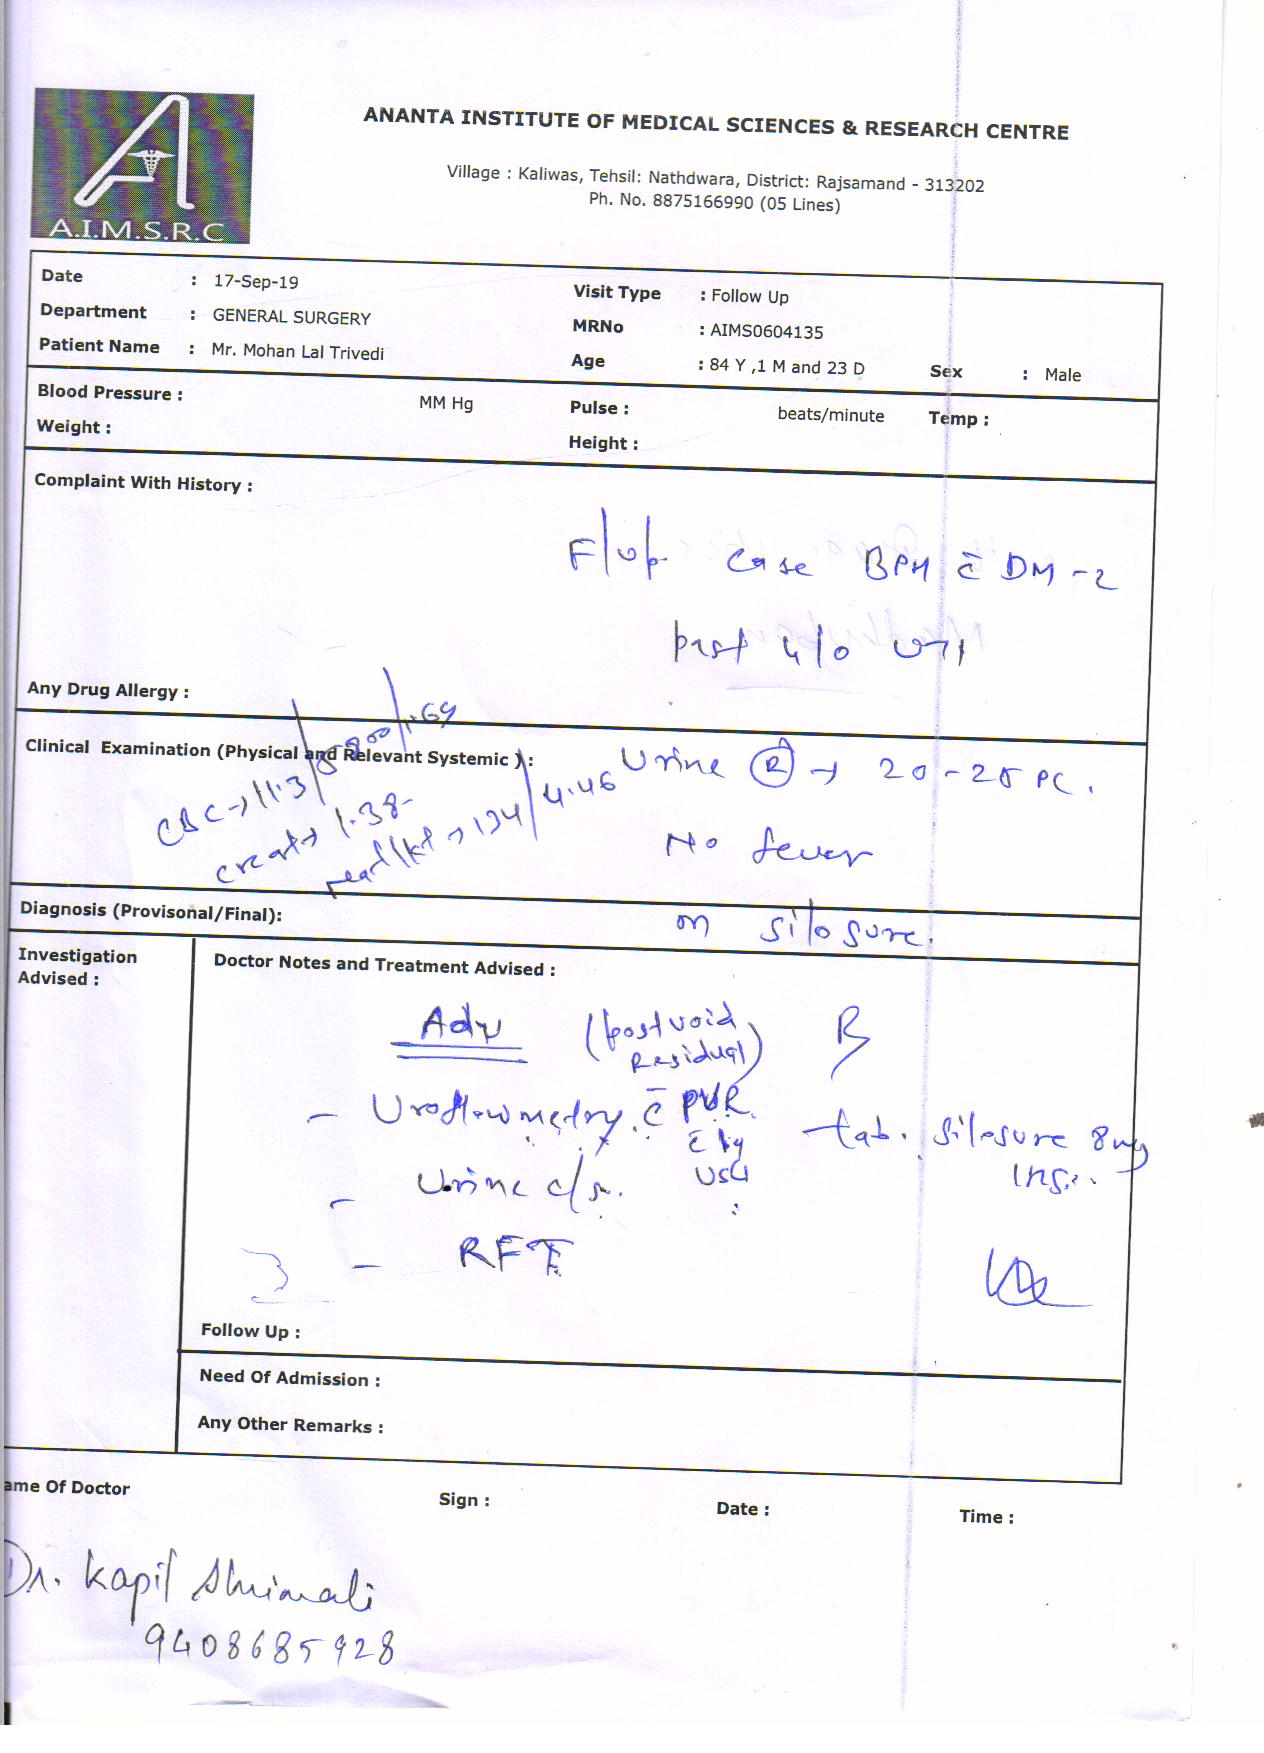 A.I.M.S.R.C
ANANTA INSTITUTE OF MEDICAL SCIENCES & RESEARCH CENTRE
Village : Kaliwas, Tehsil: Nathdwara, District: Rajsamand - 313202
Ph. No. 8875166990 (05 Lines)
Date : 17-Sep-19 Visit Type : Follow Up
Department : GENERAL SURGERY MRNo : AIMS0604135
Patient Name : Mr. Mohan Lal Trivedi Age : 84 Y ,1 M and 23 D Sex : Male
Blood Pressure : MM Hg Pulse : beats/minute Temp :
Weight : Height :
Complaint With History :
F/up case BPH c̄ DM-2
past h/o UTI
Any Drug Allergy :
Clinical Examination (Physical and Relevant Systemic ) :
Urine (R) → 20-25 PC.
CBC → 11.3/5800/1.69
creat → 1.38
→ 134/4.46
No fever
Diagnosis (Provisonal/Final):
on silosure.
Investigation Advised :
Doctor Notes and Treatment Advised :
Adv (post void Residual)
- Uroflowmetry c̄ PVR c̄ by USG
- Urine c/s.
- RFT
tab. silosure 8mg
Follow Up :
Need Of Admission :
Any Other Remarks :
ame Of Doctor Sign : Date : Time :
Dr. Kapil Shrimali
9408685928